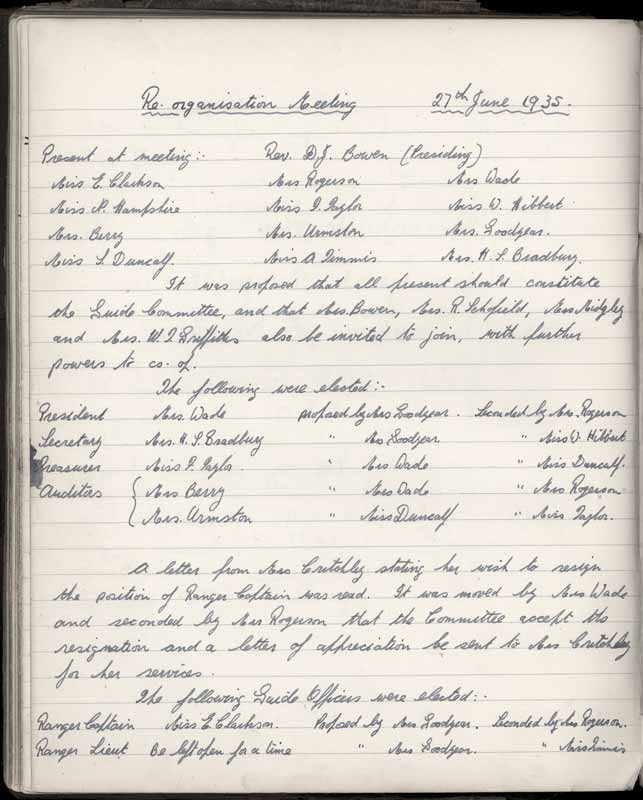 Re. organisation Meeting 27th June 1935.
Present at meeting:- Rev. D.J. Bowen (Presiding)
Miss E. Clarkson Mrs Rogerson Mrs Wade
Miss N. Hampshire Miss I. Taylor Miss W. Hibbert
Mrs. Berry Mrs. Urmston Mrs. Goodyear.
Miss S. Duncalf. Miss A Timmis Mrs. H. S. Bradbury.
It was proposed that all present should constitute
the Guide Committee, and that Mrs. Bowen, Mrs. R. Schofield, Miss Midgley
and Mrs. W J Griffiths also be invited to join, with further
powers to co. op.
The following were elected:-
President Mrs. Wade proposed by Mrs Goodyear. Seconded by Mrs. Rogerson
Secretary Mrs. H. S. Bradbury " Mrs Goodyear " Miss W. Hibbert
Treasurer Miss I. Taylor " Mrs Wade " Miss Duncalf.
Auditors { Mrs Berry " Mrs Wade " Mrs Rogerson
Mrs. Urmston " Miss Duncalf " Miss Taylor.
A letter from Mrs Critchley stating her wish to resign
the position of Ranger Captain was read. It was moved by Mrs Wade
and seconded by Mrs Rogerson that the Committee accept the
resignation and a letter of appreciation be sent to Mrs Critchley
for her services.
The following Guide Officers were elected:-
Ranger Captain Miss E. Clarkson. Proposed by Mrs Goodyear. Seconded by Mrs Rogerson.
Ranger Lieut Be left open for a time " Mrs Goodyear. " Miss Timmis